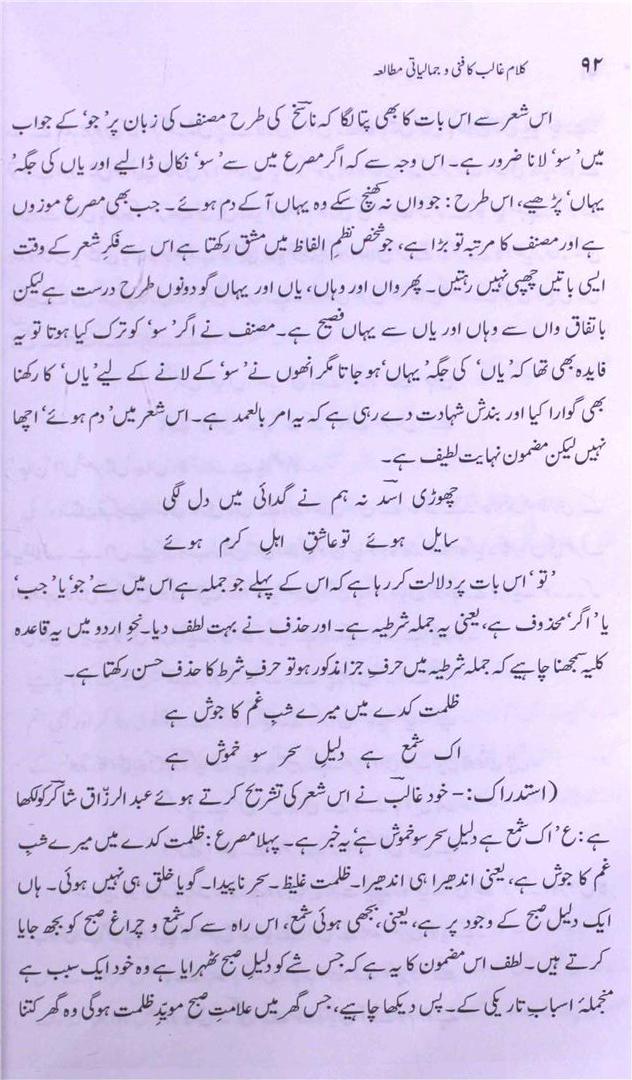 ۹۲ کلام غالب کا فنی و جمالیاتی مطالعہ
اس شعر سے اس بات کا بھی پتا لگا کہ ناسخؔ کی طرح مصنف کی زبان پر ’جو‘ کے جواب
میں ’سو‘ لانا ضرور ہے۔ اس وجہ سے کہ اگر مصرع میں سے ’سو‘ نکال ڈالیے اور یاں کی جگہ
یہاں‘ پڑھیے، اس طرح: جو واں نہ کھنچ سکے وہ یہاں آ کے دم ہوئے۔ جب بھی مصرع موزوں
ہے اور مصنف کا مرتبہ تو بڑا ہے، جو شخص نظمِ الفاظ میں مشق رکھتا ہے اس سے فکرِ شعر کے وقت
ایسی باتیں چھپی نہیں رہتیں۔ پھر واں اور وہاں، یاں اور یہاں گو دونوں طرح درست ہے لیکن
باتفاق واں سے وہاں اور یاں سے یہاں فصیح ہے۔ مصنف نے اگر ’سو‘ کو ترک کیا ہوتا تو یہ
فایدہ بھی تھا کہ ’یاں‘ کی جگہ ’یہاں‘ ہو جاتا مگر انھوں نے ’سو‘ کے لانے کے لیے ’یاں‘ کا رکھنا
بھی گوارا کیا اور بندش شہادت دے رہی ہے کہ یہ امر بالعمد ہے۔ اس شعر میں ’دم ہوئے‘ اچھا
نہیں لیکن مضمون نہایت لطیف ہے۔
چھوڑی اسدؔ نہ ہم نے گدائی میں دل لگی
سایل ہوئے تو عاشق اہل کرم ہوئے
’تو‘ اس بات پر دلالت کر رہا ہے کہ اس کے پہلے جو جملہ ہے اس میں سے ’جو‘ یا ’جب‘
یا ’اگر‘ محذوف ہے، یعنی یہ جملہ شرطیہ ہے۔ اور حذف نے بہت لطف دیا۔ نحو اردو میں یہ قاعدہ
کلیہ سمجھنا چاہیے کہ جملہ شرطیہ میں حرفِ جزا مذکور ہو تو حرفِ شرط کا حذف حسن رکھتا ہے۔
ظلمت کدے میں میرے شبِ غم کا جوش ہے
اک شمع ہے دلیلِ سحر سو خموش ہے
(استدراک:- خود غالبؔ نے اس شعر کی تشریح کرتے ہوئے عبدالرزّاق شاکر کو لکھا
ہے: ع ’اک شمع ہے دلیلِ سحر سو خموش ہے‘ یہ خبر ہے۔ پہلا مصرع: ظلمت کدے میں میرے شبِ
غم کا جوش ہے، یعنی اندھیرا ہی اندھیرا۔ ظلمت غلیظ۔ سحر ناپیدا۔ گویا خلق ہی نہیں ہوئی۔ ہاں
ایک دلیل صبح کے وجود پر ہے، یعنی بجھی ہوئی شمع، اس راہ سے کہ شمع و چراغ صبح کو بجھ جایا
کرتے ہیں۔ لطف اس مضمون کا یہ ہے کہ جس شے کو دلیلِ صبح ٹھہرایا ہے وہ خود ایک سبب ہے
منجملۂ اسباب تاریکی کے۔ پس دیکھا چاہیے، جس گھر میں علامتِ صبح مویدِ ظلمت ہوگی وہ گھر کتنا